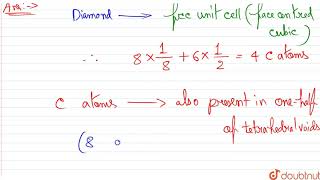 Ans:→
Diamond → fcc unit cell (face centred cubic)
∴ 8 × 1/8 + 6 × 1/2 = 4 C atoms
C atoms → also present in one-half of tetrahedral voids
(8
doubtnut